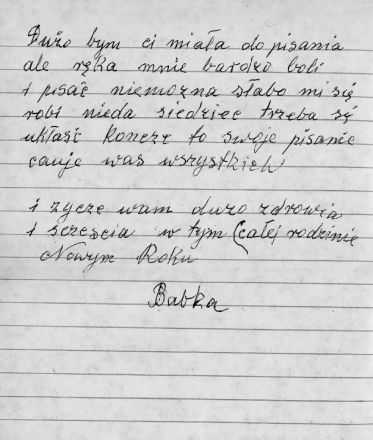 Dużo bym ci miała do pisania
ale ręka mnie bardzo boli
i psać niemozna słabo mi się
robi nieda siedziec trzeba się
ukłaść koncze to swoje pisanie
cauje was wszystkich
i zycze wam dużo zdrowia
i sczescia w tym (całej rodzinie
Nowym Roku
Babka